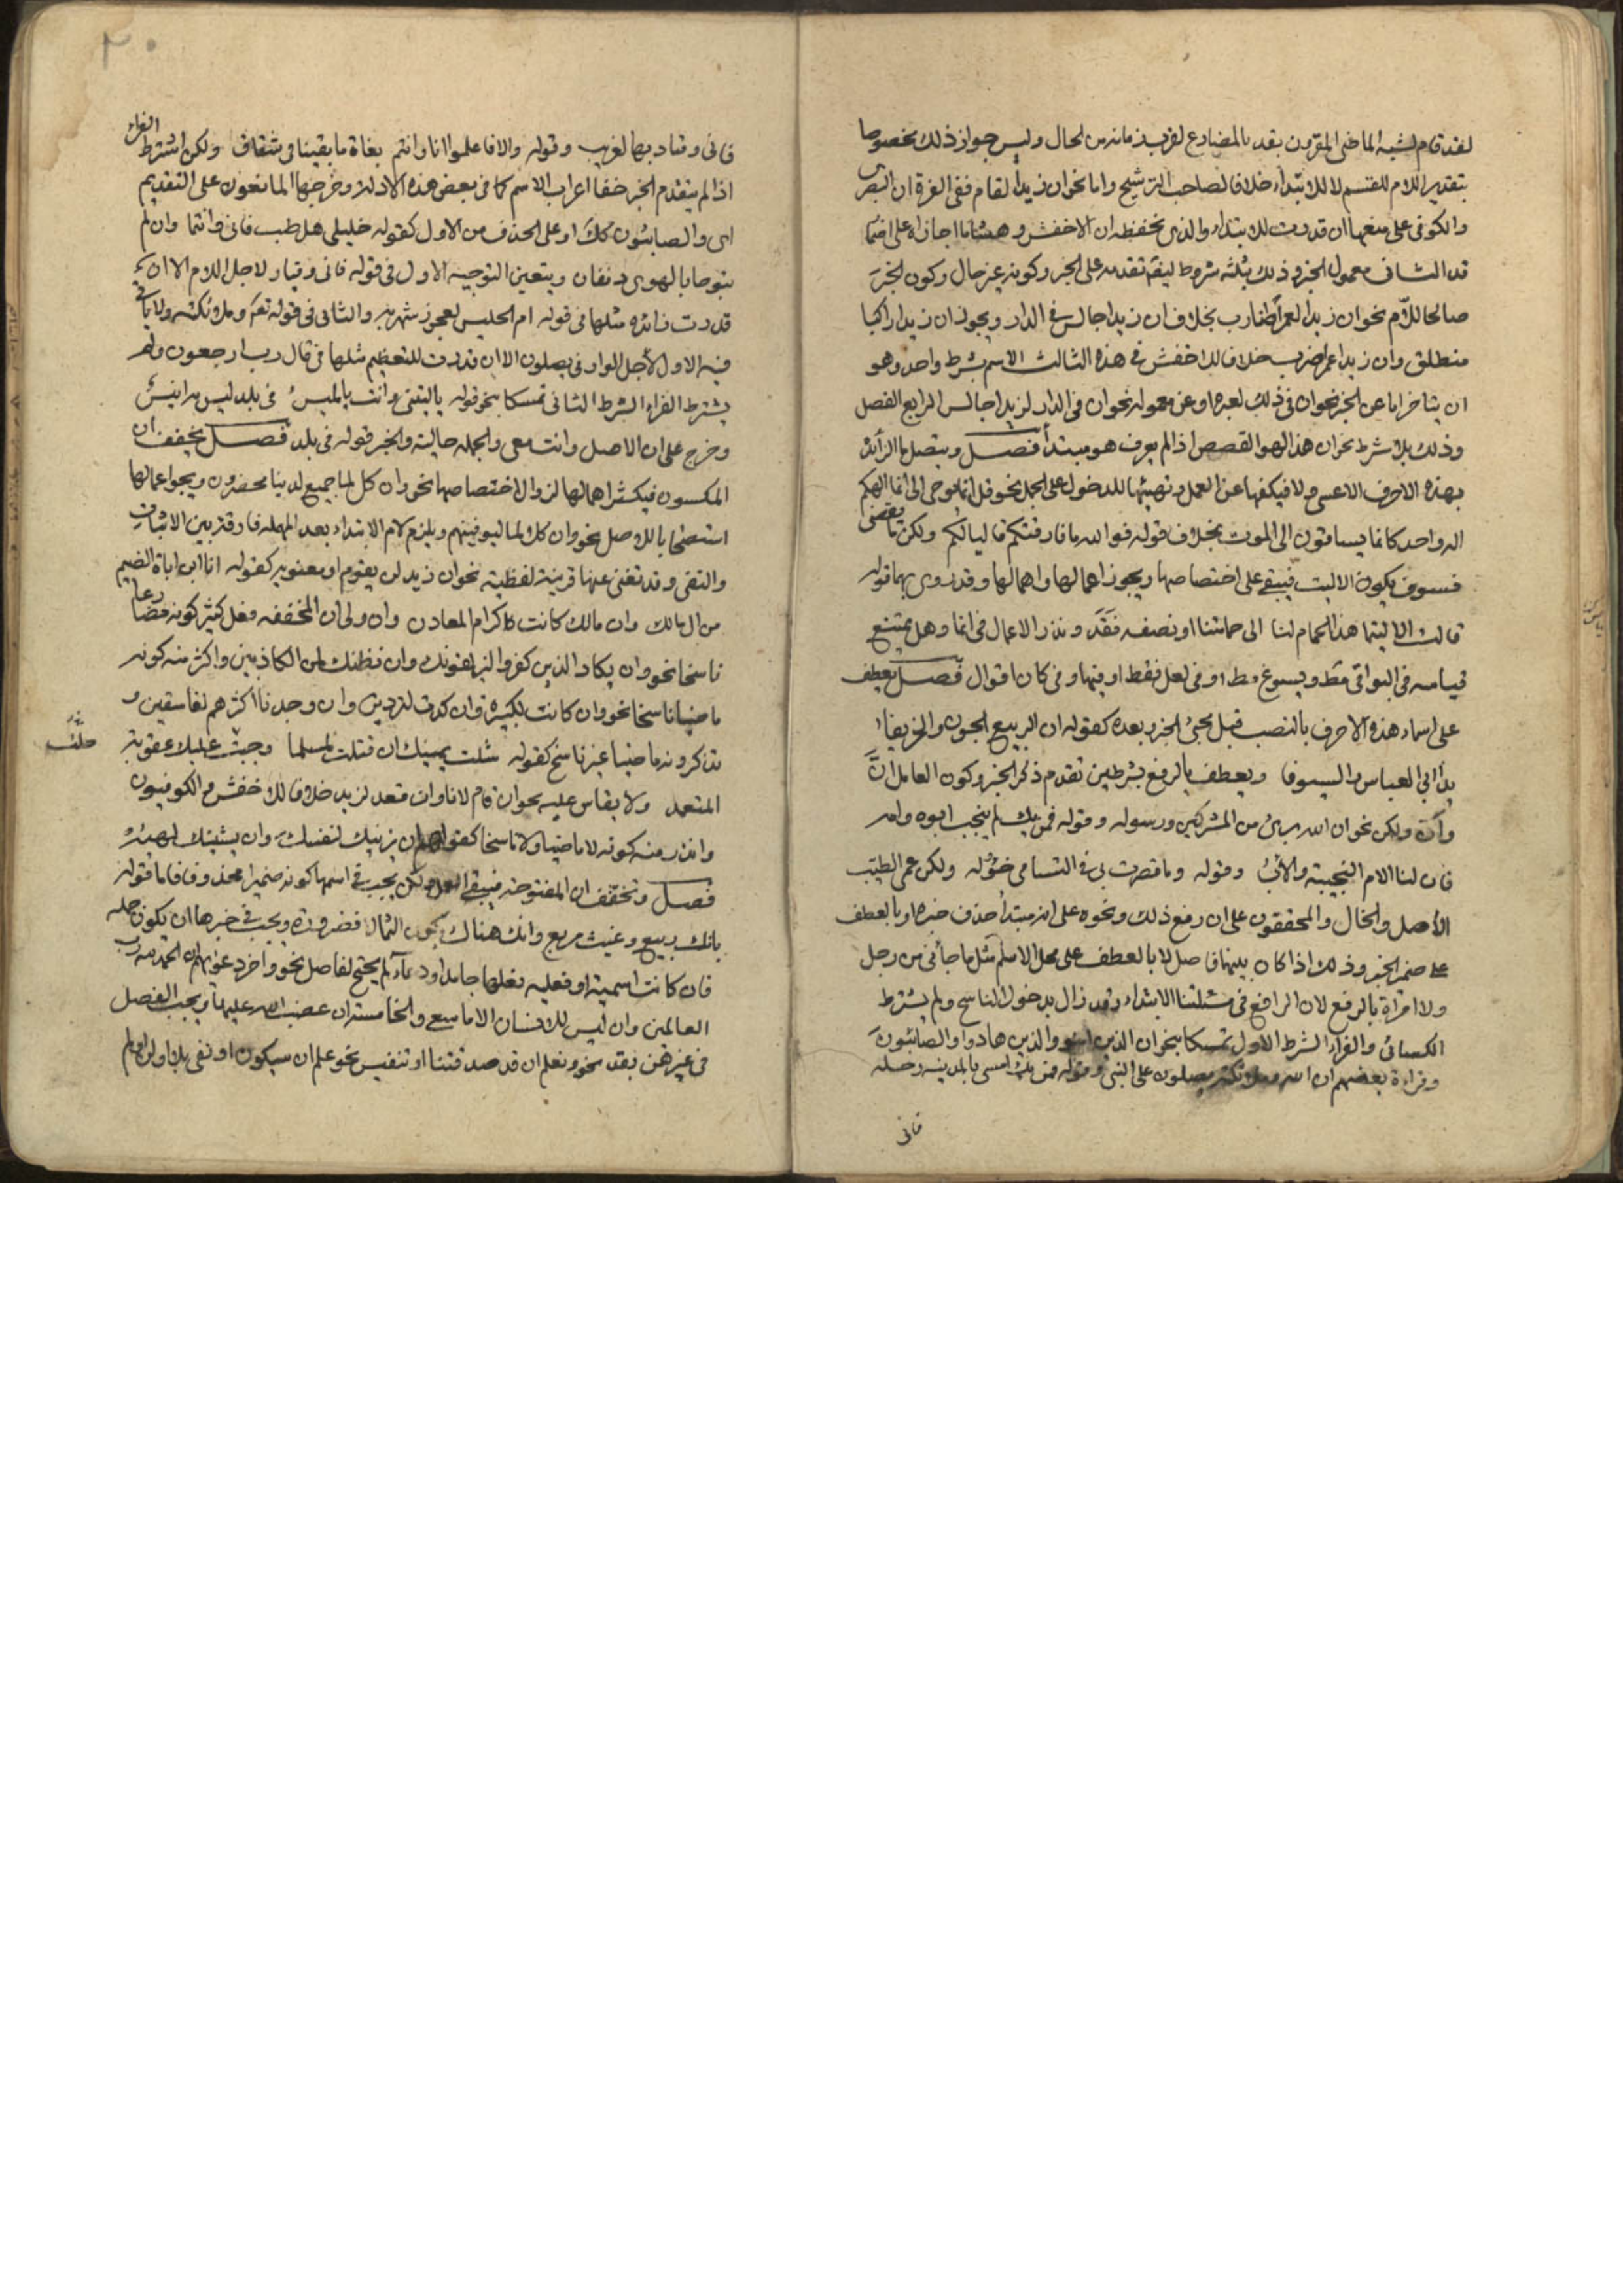 لقد قام لشبه الماضى المقرون بقد بالمضارع لقرب زمانه من الحال وليس جواز ذلك مخصوصا
بتقدير اللام للقسم لا للابتداء خلافا لصاحب الترشيح واما نحو ان زيدا لقام ففى الغرة ان البصرى
والكوفى على منعها ان قدرت للابتداء والذى نحفظه ان الاخفش وهشاما اجازاه على اضمار
قد الثانى معمول الخبر وذلك بثلثة شروط ايضا تقدمه على الخبر وكونه غير حال وكون الخبر
صالحا للام نحو ان زيدا لعمرا ضارب بخلاف ان زيدا جالس فى الدار ويجوز ان زيدا راكبا
منطلق وان زيدا عمرا ضرب خلافا للاخفش فى هذه الثالث الاسم بشرط واحد وهو
ان يتأخر اما عن الخبر نحو ان فى ذلك لعبرة او عن معموله نحو ان فى الدار لزيدا جالس الرابع الفصل
وذلك بلا شرط نحو ان هذا لهو القصص اذا لم يعرف هو مبتدأ فصل ويتصل ما الزائدة
بهذه الاحرف الا عسى ولا فيكفها عن العمل وتهيئها للدخول على الجمل نحو قل انما يوحى الى انما الهكم
اله واحد كانما يساقون الى الموت بخلاف قوله فوالله ما فارقتكم قاليا لكم ولكن ما يقضى
فسوف يكون الا ليت فيبقى على اختصاصها ويجوز اعمالها واهمالها وقد روى بهما قوله
قالت الا ليتما هذا الحمام لنا الى حمامتنا او نصفه فقد وندر الاعمال فى انما وهل يمتنع
قياسه فى البواقى مط ويسوغ مط او فى لعل فقط او فيها وفى كان اقوال فصل يعطف
على اسماء هذه الاحرف بالنصب قبل مجئ الخبر وبعده كقوله ان الربيع الجون والخريفا
يدا ابى العباس والسيوفا ويعطف بالرفع بشرطين تقدم ذكر الخبر وكون العامل ان
وان ولكن نحو ان الله برئ من المشركين ورسوله وقوله فمن يك لم ينجب ابوه وامه
فان لنا الام النجيبة والاب وقوله وما قصرت بى فى التسامى خؤلة ولكن عمى الطيب
الاصل والخال والمحققون على ان رفع ذلك ونحوه على انه مبتدأ حذف خبره او بالعطف
على ضمير الخبر وذلك اذا كان بينهما فاصل لا بالعطف على محل الاسم مثل ما جاءنى من رجل
ولا امراة بالرفع لان الرافع فى مسئلتنا الابتداء وقد زال بدخول الناسخ ولم يشترط
الكسائى والفراء الشرط الاول تمسكا بنحو ان الذين امنوا والذين هادوا والصابئون
وقراءة بعضهم ان الله وملائكته يصلون على النبى وقوله فمن يك امسى بالمدينة رحله
فانى
٢٠
فانى وقيار بها لغريب وقوله والا فاعلموا انا وانتم بغاة ما بقينا فى شقاق ولكن اشترط الفراء
اذا لم يتقدم الخبر خفا اعراب الاسم كما فى بعض هذه الادلة وخرجها المانعون على التقديم
اى والصابئون كك او على الحذف من الاول كقوله خليلى هل طب فانى وانتما وان لم
تبوحا بالهوى دنفان ويتعين التوجيه الاول فى قوله فانى وقيار لاجل اللام الا ان
قدرت زائدة مثلها فى قوله ام الحليس لعجوز شهربه والثانى فى قوله تعم وملائكته ولا يأتى
فيه الاول لاجل الواو فى يصلون الا ان قدرت للتعظيم مثلها فى قال رب ارجعون ولم
يشترط الفراء الشرط الثانى تمسكا بنحو قوله ياليتنى وانت يالميس فى بلد ليس به انيس
وخرج على ان الاصل وانت معى والجملة حالية والخبر قوله فى بلد فصل يخفف ان
المكسورة فيكثر اهمالها لزوال اختصاصها نحو وان كل لما جميع لدينا محضرون ويجوز اعمالها
استصحابا للاصل نحو وان كلا لما ليوفينهم ويلزم لام الابتداء بعد المهملة فارقة بين الاثبات
والنفى وقد تغنى عنها قرينة لفظية نحو ان زيد لن يقوم او معنوية كقوله انا ابن اباة الضيم
من ال مالك وان مالك كانت كرام المعادن وان ولى ان المخففة فعل كثر كونه مضارعا
ناسخا نحو وان يكاد الذين كفروا ليزلقونك وان نظنك لمن الكاذبين واكثر منه كونه
ماضيا ناسخا نحو وان كانت لكبيرة وان كدت لتردين وان وجدنا اكثرهم لفاسقين و
ندر كونه ماضيا غير ناسخ كقوله شلت يمينك ان قتلت لمسلما وجبت عليك عقوبة
حلت
المتعمد ولا يقاس عليه نحو ان قام لانا وان قعد لزيد خلافا للاخفش والكوفيون
واندر منه كونه لا ماضيا ولا ناسخا كقولهم ان يزينك لنفسك وان يشينك لهيه
فصل وتخفف ان المفتوحة فيبقى العمل ولكن يجب فى اسمها كونه ضميرا محذوفا فاما قوله
بانك ربيع وغيث مريع وانك هناك تكون الثمالا فضرورة ويجب فى خبرها ان يكون جملة
فان كانت اسمية او فعلية فعلها جامد او دعاء لم يحتج لفاصل نحو واخر دعويهم ان الحمد لله رب
العالمين وان ليس للانسان الا ما سعى والخامسة ان غضب الله عليها ويجب الفصل
فى غيرهن بقد نحو ونعلم ان قد صدقتنا او تنفيس نحو علم ان سيكون او نفى بلا او لن او لم